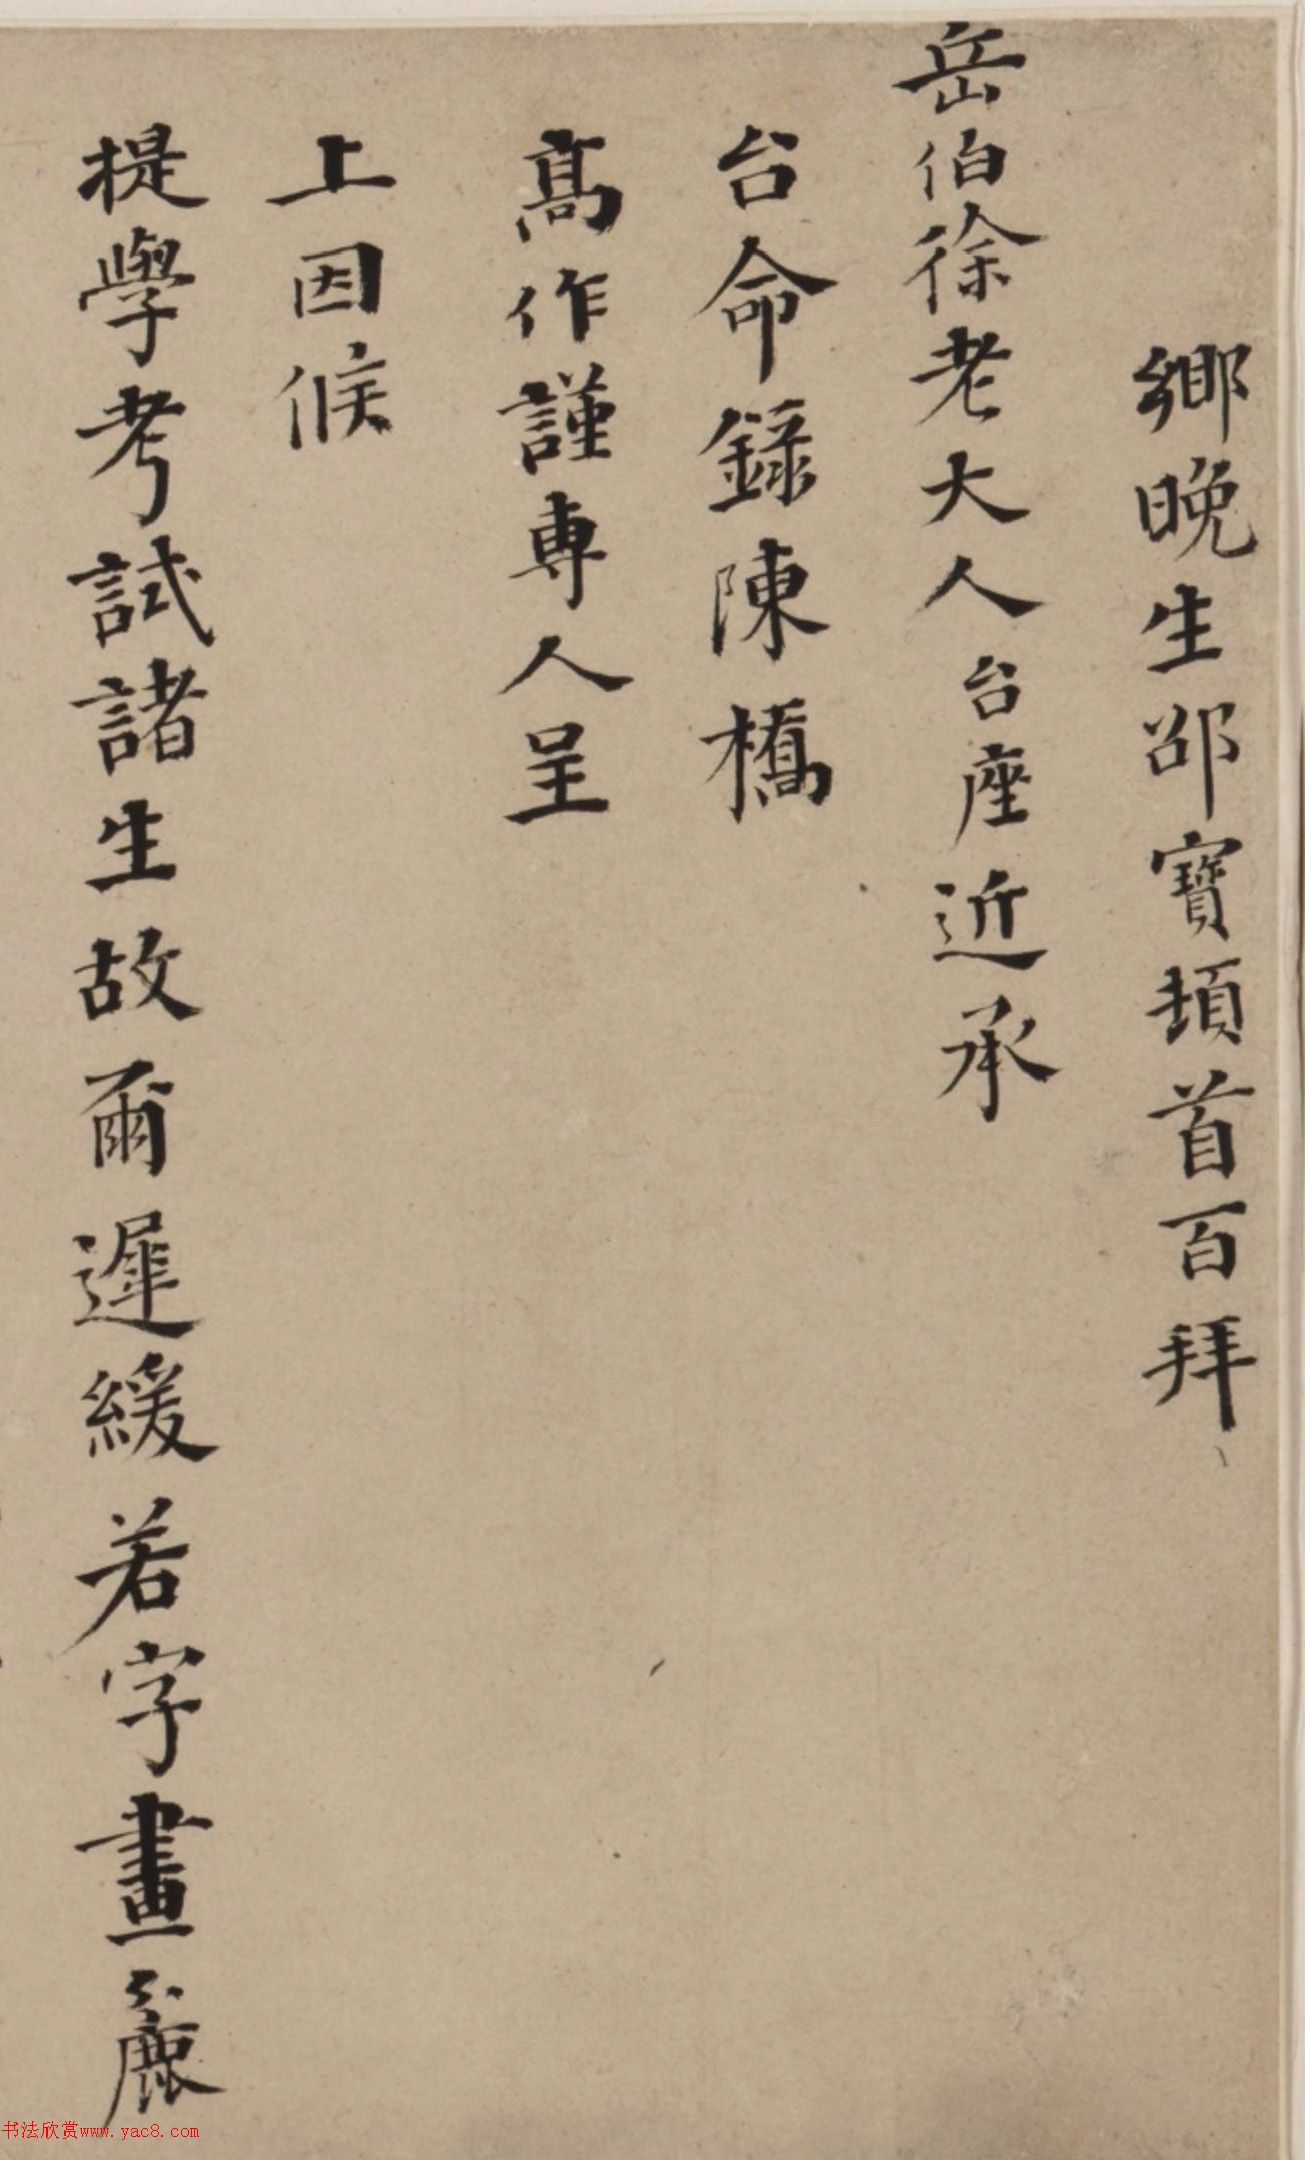 鄉晚生邵寶頓首百拜
岳伯徐老大人台座近承
台命錄陳橋
高作謹專人呈
上因候
提學考試諸生故爾遲緩若字畫麄
书法欣赏www.yac8.com